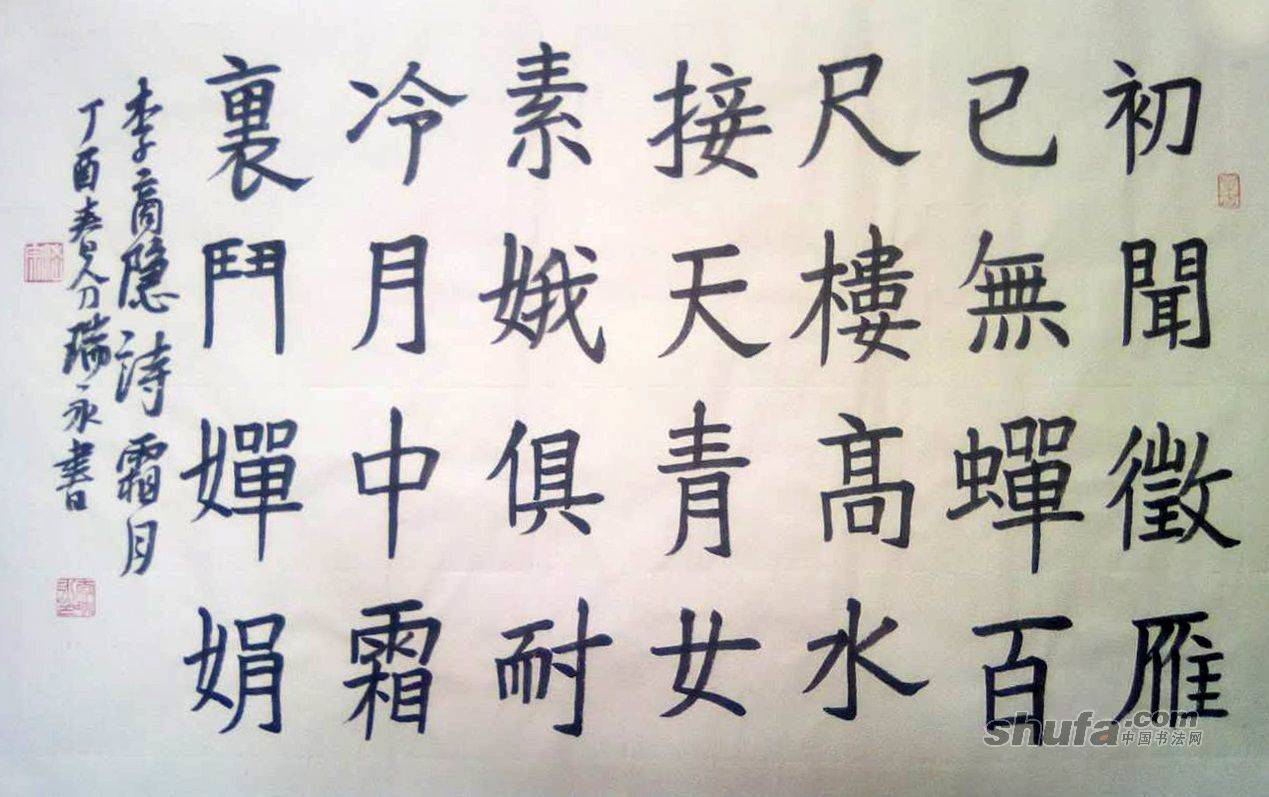 初聞徵雁
已無蟬百
尺樓髙水
接天青女
素娥俱耐
冷月中霜
裏鬥嬋娟
李商隐詩霜月
丁酉春分瑞永書
shufa.com
中国书法网